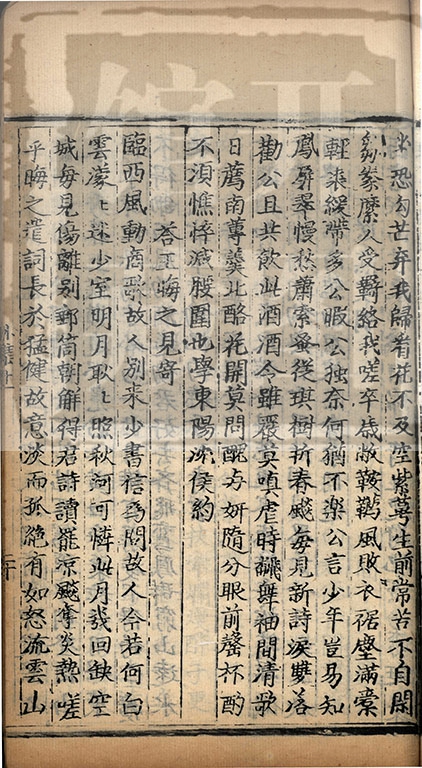 坐恐勾芒弃我歸看花不及空紫萼生前常苦不自閑
豢縻人受羈絡我嗟卒歲敝鞍韉風敗衣裾塵滿橐
輕来緩帶多公暇公獨奈何猶不樂公言少年豈易知
鳳屏翠幔愁蕭索蚤從琪樹折春飈每見新詩淚雙落
勸公且共飲此酒酒令雖嚴莫嗔虐時翻舞袖間清歌
日薦南蓴羹北酪花開莫問醜与妍隨分眼前罄杯酌
不湏憔悴減腰圍也學東陽沈侯約
荅王晦之見寄
臨西風動商歌故人别来少書信爲問故人今若何白
雲濛濛迷少室明月耿耿照秋河可憐此月幾回缺空
城每見傷離别郵筒朝解得君詩讀罷凉飈奪炎熱嗟
乎晦之遣詞長於猛健故意淡而孤絶有如怒流雲山